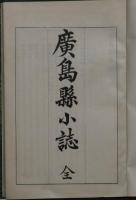 廣島縣小誌
全